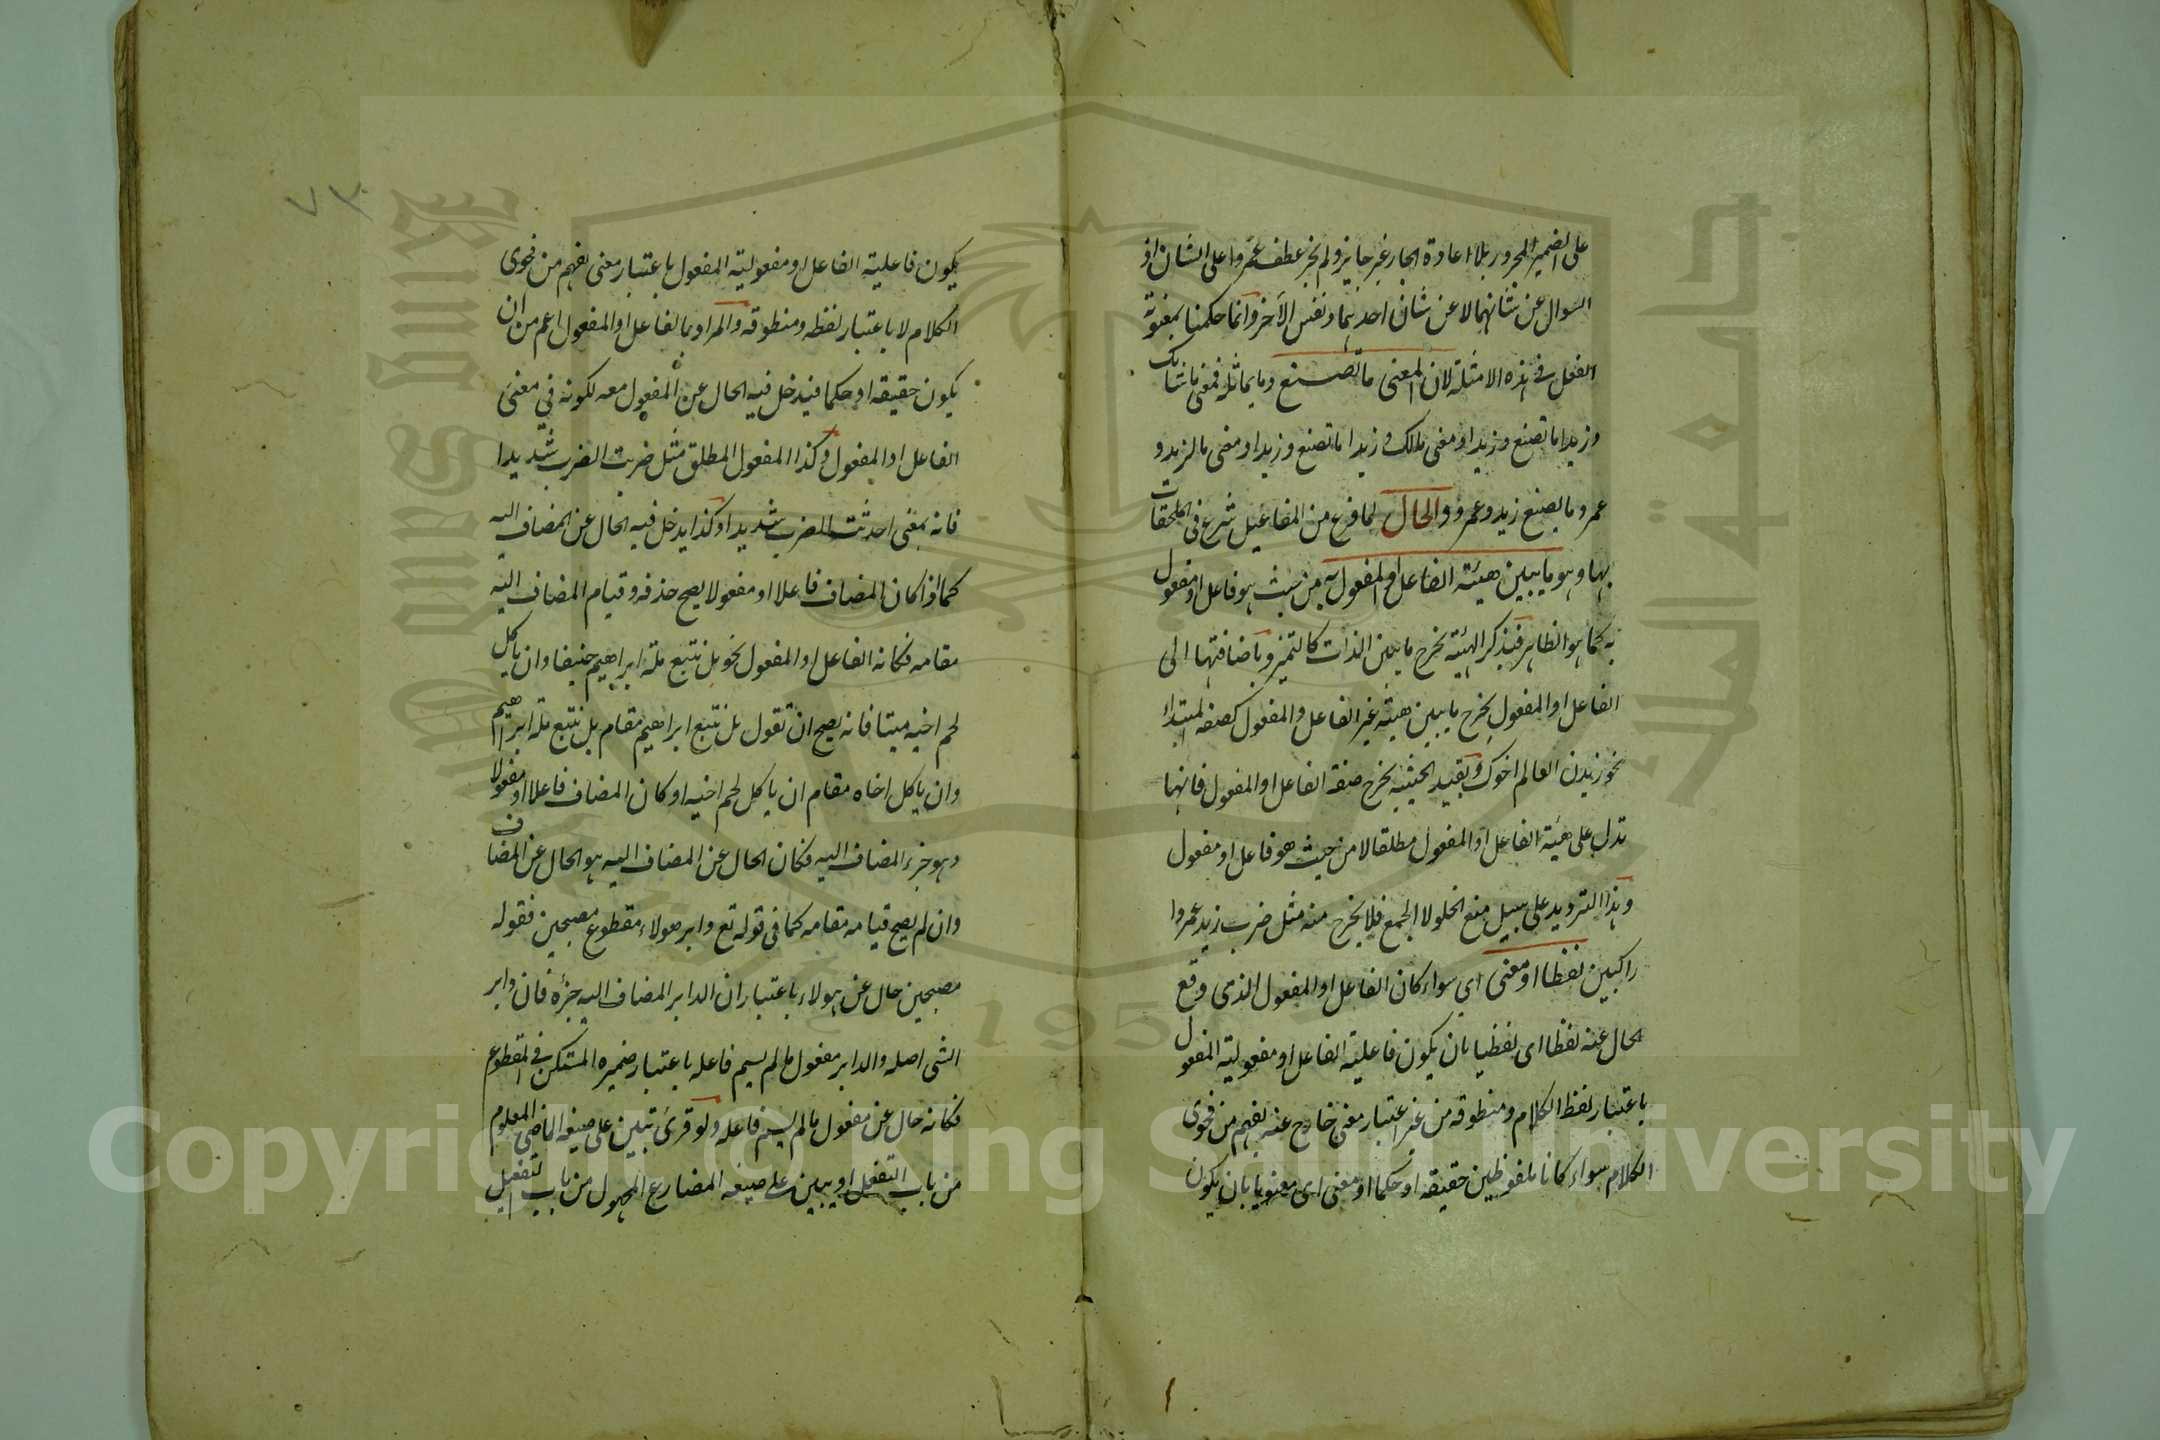 على الضمير المجرور بلا اعادة الجار غير جايز ولم يجز عطف عمروا على الشان اذ
السوال عن شانهما لا عن شان احدهما ونفس الآخر وانما حكمنا بمعنوية
الفعل في هذه الامثلة لان المعنى ما تصنع وما يماثله فمعنى ما شانك
وزيدا ما تصنع وزيدا ومعنى مالك وزيدا ما تصنع وزيدا ومعنى ما لزيد و
عمرو ما يصنع زيد وعمرو والحال لما فرغ من المفاعيل شرع في الملحقات
بها وهو ما يبين هيئة الفاعل او المفعول به من حيث هو فاعل او مفعول
به كما هو الظاهر فبذكر الهيئة يخرج ما يبين الذات كالتميز وباضافتها الى
الفاعل او المفعول يخرج ما يبين هيئة غير الفاعل والمفعول كصفة المبتداء
نحو زيدن العالم اخوك وبقيد الحيثية يخرج صفة الفاعل او المفعول فانها
تدل على هيئة الفاعل او المفعول مطلقا لا من حيث هو فاعل او مفعول
وهذا الترديد على سبيل منع الخلو لا الجمع فلا يخرج منه مثل ضرب زيد عمروا
راكبين لفظا او معنى اي سواء كان الفاعل او المفعول الذي وقع
الحال عنه لفظا اى لفظيا بان يكون فاعلية الفاعل او مفعولية المفعول
باعتبار لفظ الكلام ومنطوقه من غير اعتبار معنى خارج عنه يفهم من فحوى
الكلام سواء كانا ملفوظين حقيقة او حكما او معنى اى معنويا بان يكون
٧٣
يكون فاعلية الفاعل او مفعولية المفعول باعتبار معنى يفهم من فحوى
الكلام لا باعتبار لفظه ومنطوقه والمراد بالفاعل او المفعول اعم من ان
يكون حقيقة او حكما فيدخل فيه الحال عن المفعول معه لكونه في معنى
الفاعل او المفعول وكذا المفعول المطلق مثل ضربت الضرب شديدا
فانه بمعنى احدثت الضرب شديدا وكذا يدخل فيه الحال عن المضاف اليه
كما اذا كان المضاف فاعلا او مفعولا يصح حذفه وقيام المضاف اليه
مقامه فكانه الفاعل او المفعول نحو بل نتبع ملة ابراهيم حنيفا وان ياكل
لحم اخيه ميتا فانه يصح ان تقول بل نتبع ابراهيم مقام بل نتبع ملة ابراهيم
وان ياكل اخاه مقام ان ياكل لحم اخيه او كان المضاف فاعلا او مفعولا
وهو جزء المضاف اليه فكان الحال عن المضاف اليه هو الحال عن المضاف
وان لم يصح قيامه مقامه كما في قوله تع دابر هولاء مقطوع مصبحين فقوله
مصبحين حال عن هولاء باعتبار ان الدابر المضاف اليه جزءه فان دابر
الشى اصله والدابر مفعول ما لم يسم فاعله باعتبار ضميره المستكن في المقطوع
فكانه حال عن مفعول ما لم يسم فاعله ولو قرئ تبين على صيغة الماضي المعلوم
من باب التفعل او يبين على صيغة المضارع المجهول من باب التفعيل
King Saud University
جامعة الملك سعود
Copyright © King Saud University